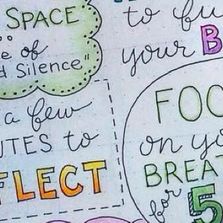 SPACE
e of
d Silence"
to fu
your B
a few
UTES to
FLECT
FOC
on yo
BREA
for 5